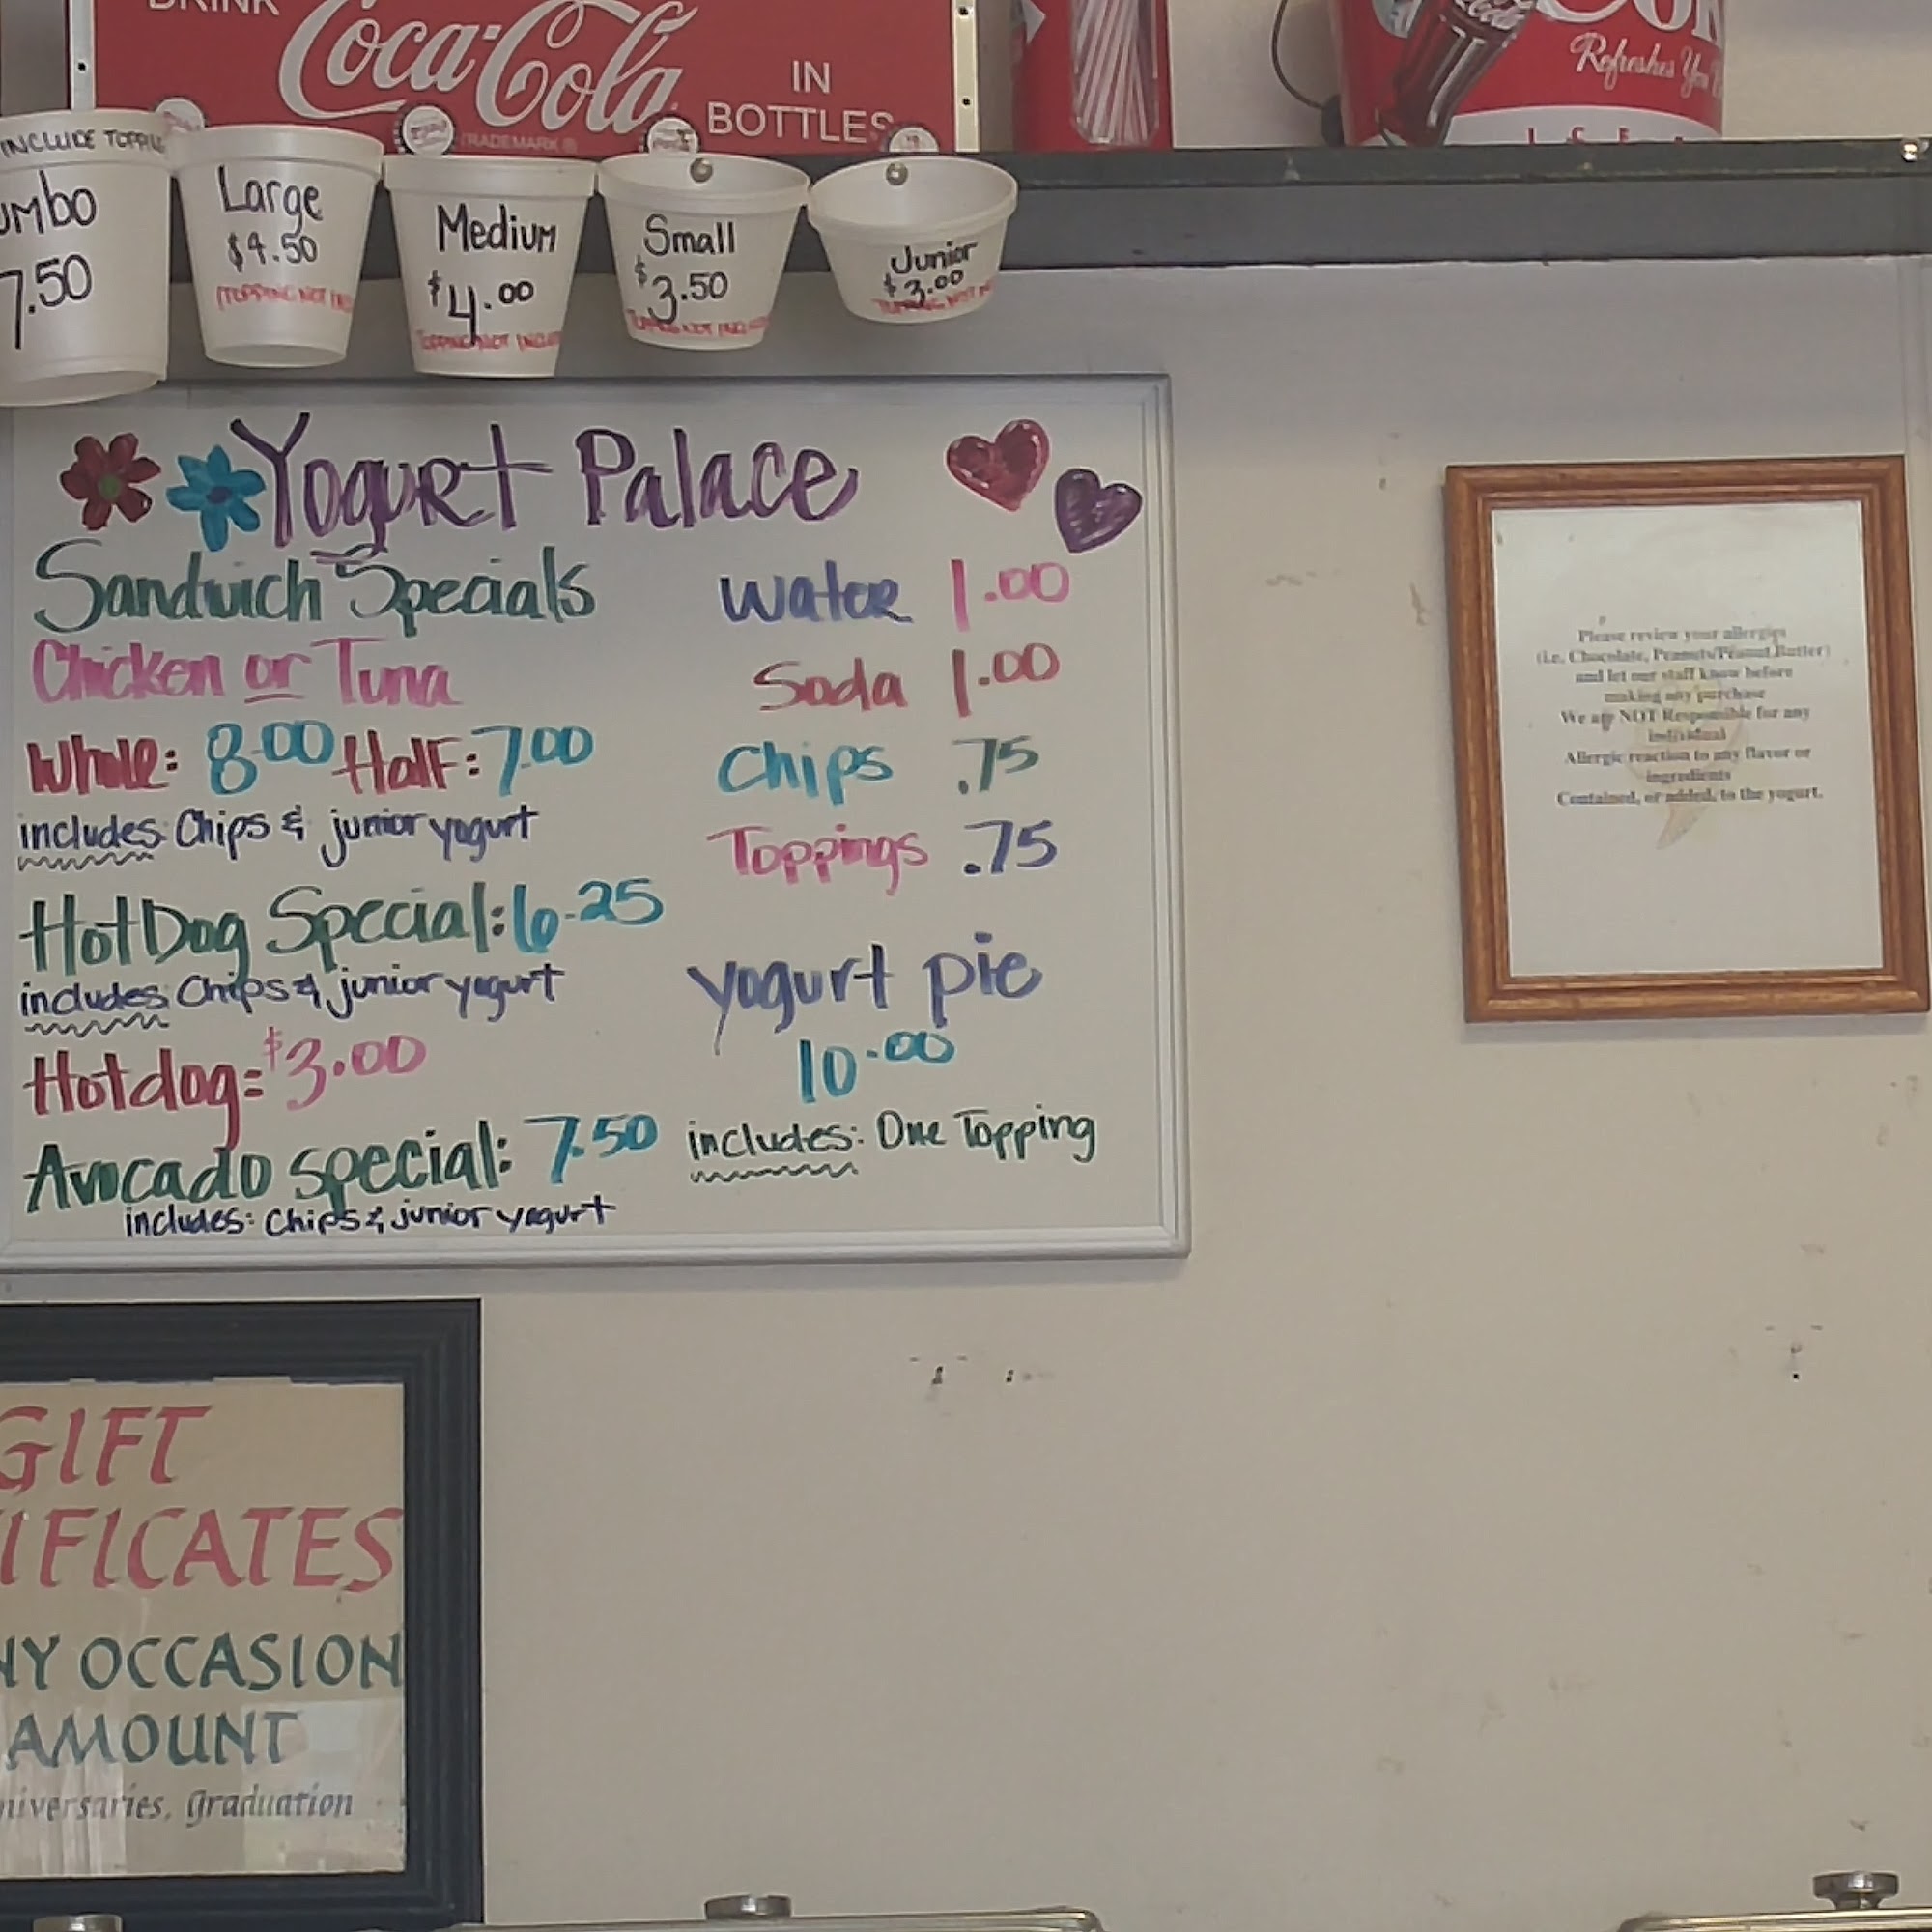 DRINK
Coca-Cola
IN
BOTTLES
TRADEMARK ®
Refreshes You
ICE
INCLUDE
umbo
7.50
Large
$4.50
(TOPPING NOT
Medium
$4.00
TOPPING NOT
Small
$3.50
TOPPING NOT
Junior
$3.00
TOPPING NOT
Yogurt Palace
Sandwich Specials
Chicken or Tuna
Whole: 8.00 Half: 7.00
includes: Chips & junior yogurt
HotDog Special: 6.25
includes: Chips & junior yogurt
Hotdog = $3.00
Avocado special: 7.50
includes: Chips & junior yogurt
Water 1.00
Soda 1.00
Chips .75
Toppings .75
yogurt pie
10.00
includes: One Topping
Please review your allergies
(i.e. Chocolate, Peanuts/Peanut Butter)
and let our staff know before
making any purchase
We are NOT Responsible for any
individual
Allergic reaction to any flavor or
ingredients
Contained, or added, to the yogurt.
GIFT
IFICATES
NY OCCASION
AMOUNT
niversaries, Graduation